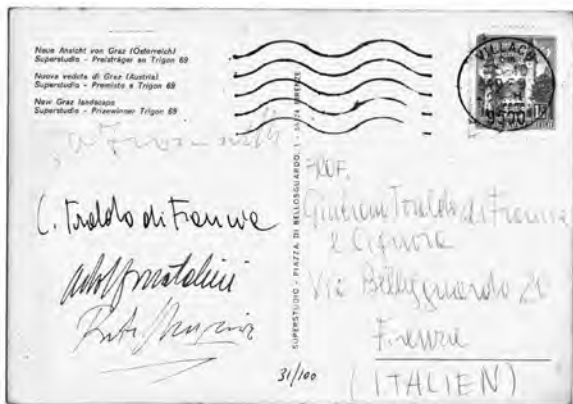 Neue Ansicht von Graz (Österreich)
Superstudio - Preisträger an Trigon 69
Nuova veduta di Graz (Austria)
Superstudio - Premiato a Trigon 69
New Graz landscape
Superstudio - Prizewinner Trigon 69
C. Toraldo di Francia
Adolfo Natalini
31/100
SUPERSTUDIO - PIAZZA DI BELLOSGUARDO, 1 - 50124 FIRENZE
VILLACH
9500
PROF.
Giuliano Toraldo di Francia
e Signora
Via Bellosguardo
Firenze
(ITALIEN)